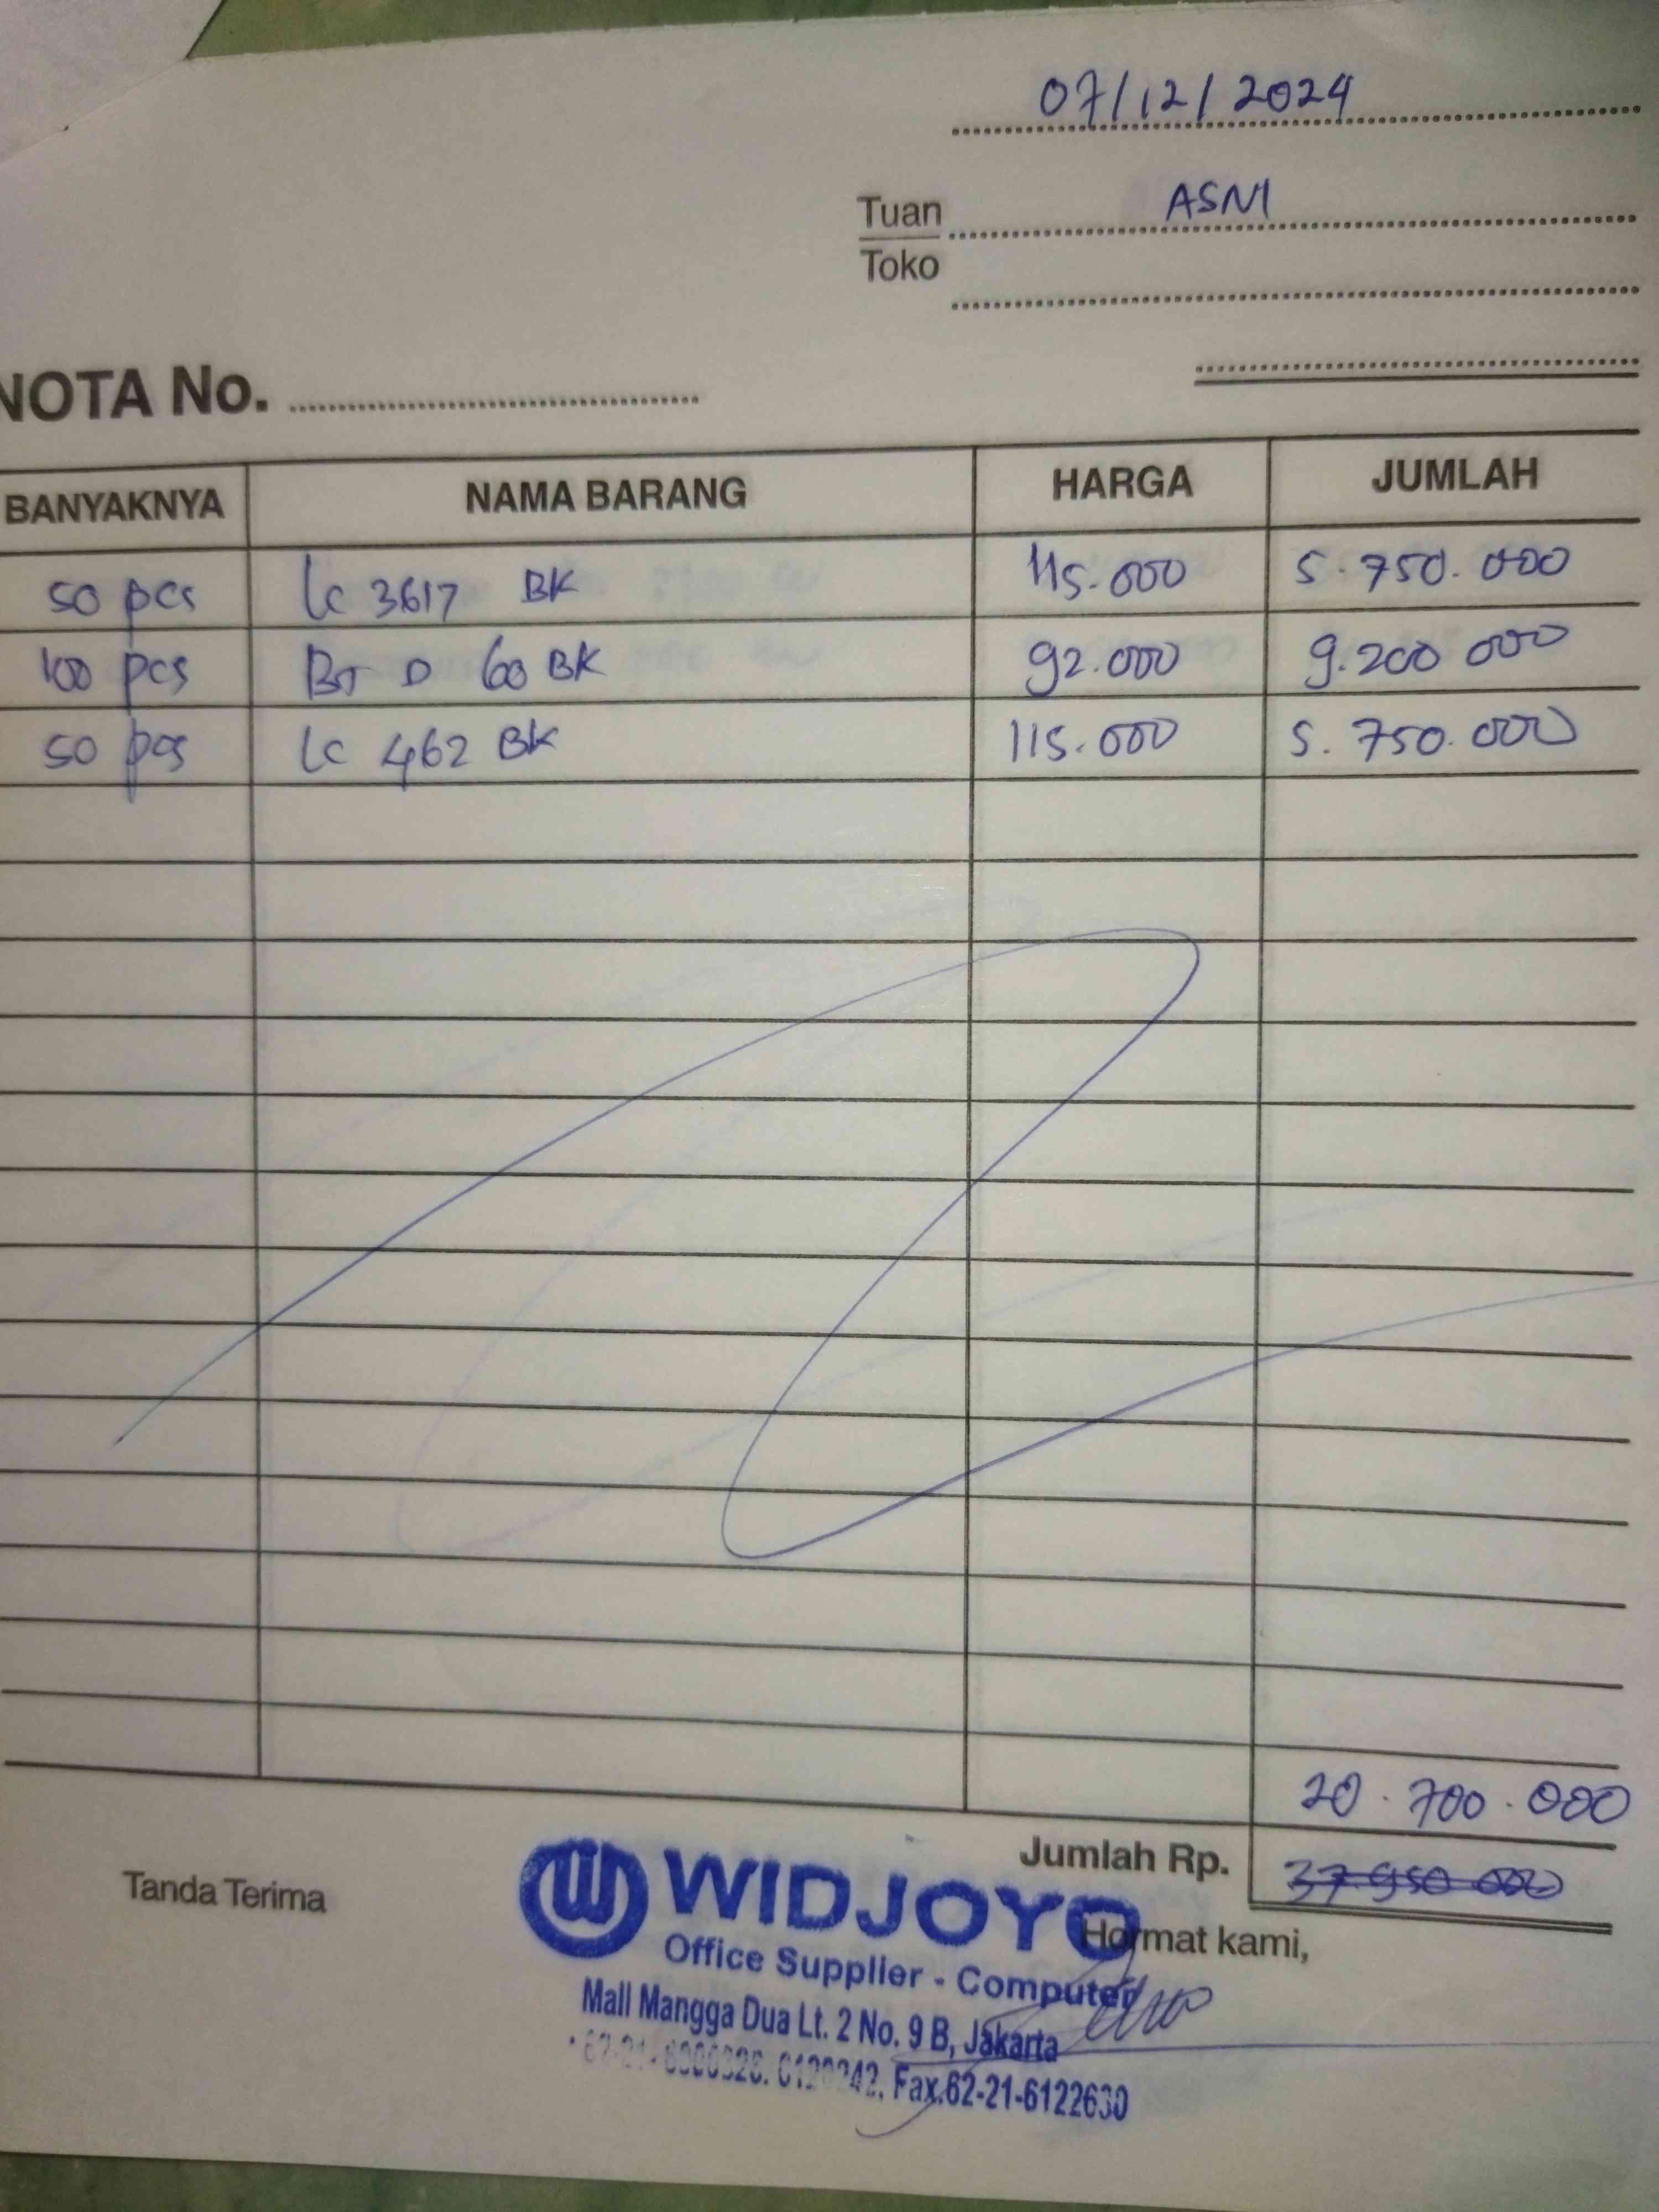 07/12/2024
Tuan ASNI
Toko
NOTA No.
BANYAKNYA NAMA BARANG HARGA JUMLAH
50 pcs LC 3617 BK 115.000 5.750.000
100 pcs BT D 60 BK 92.000 9.200 000
50 pcs LC 462 BK 115.000 5.750.000
20.700.000
Jumlah Rp. 37.950 000
Tanda Terima
Hormat kami,
WIDJOYO
Office Supplier - Computer
Mall Mangga Dua Lt. 2 No. 9 B, Jakarta
Fax.62-21-6122630